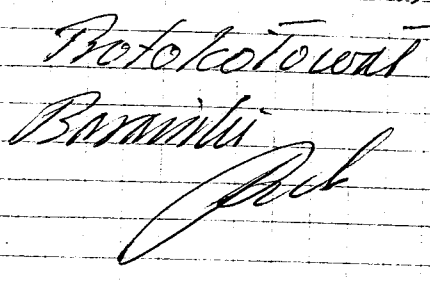 Protokołował
Barański